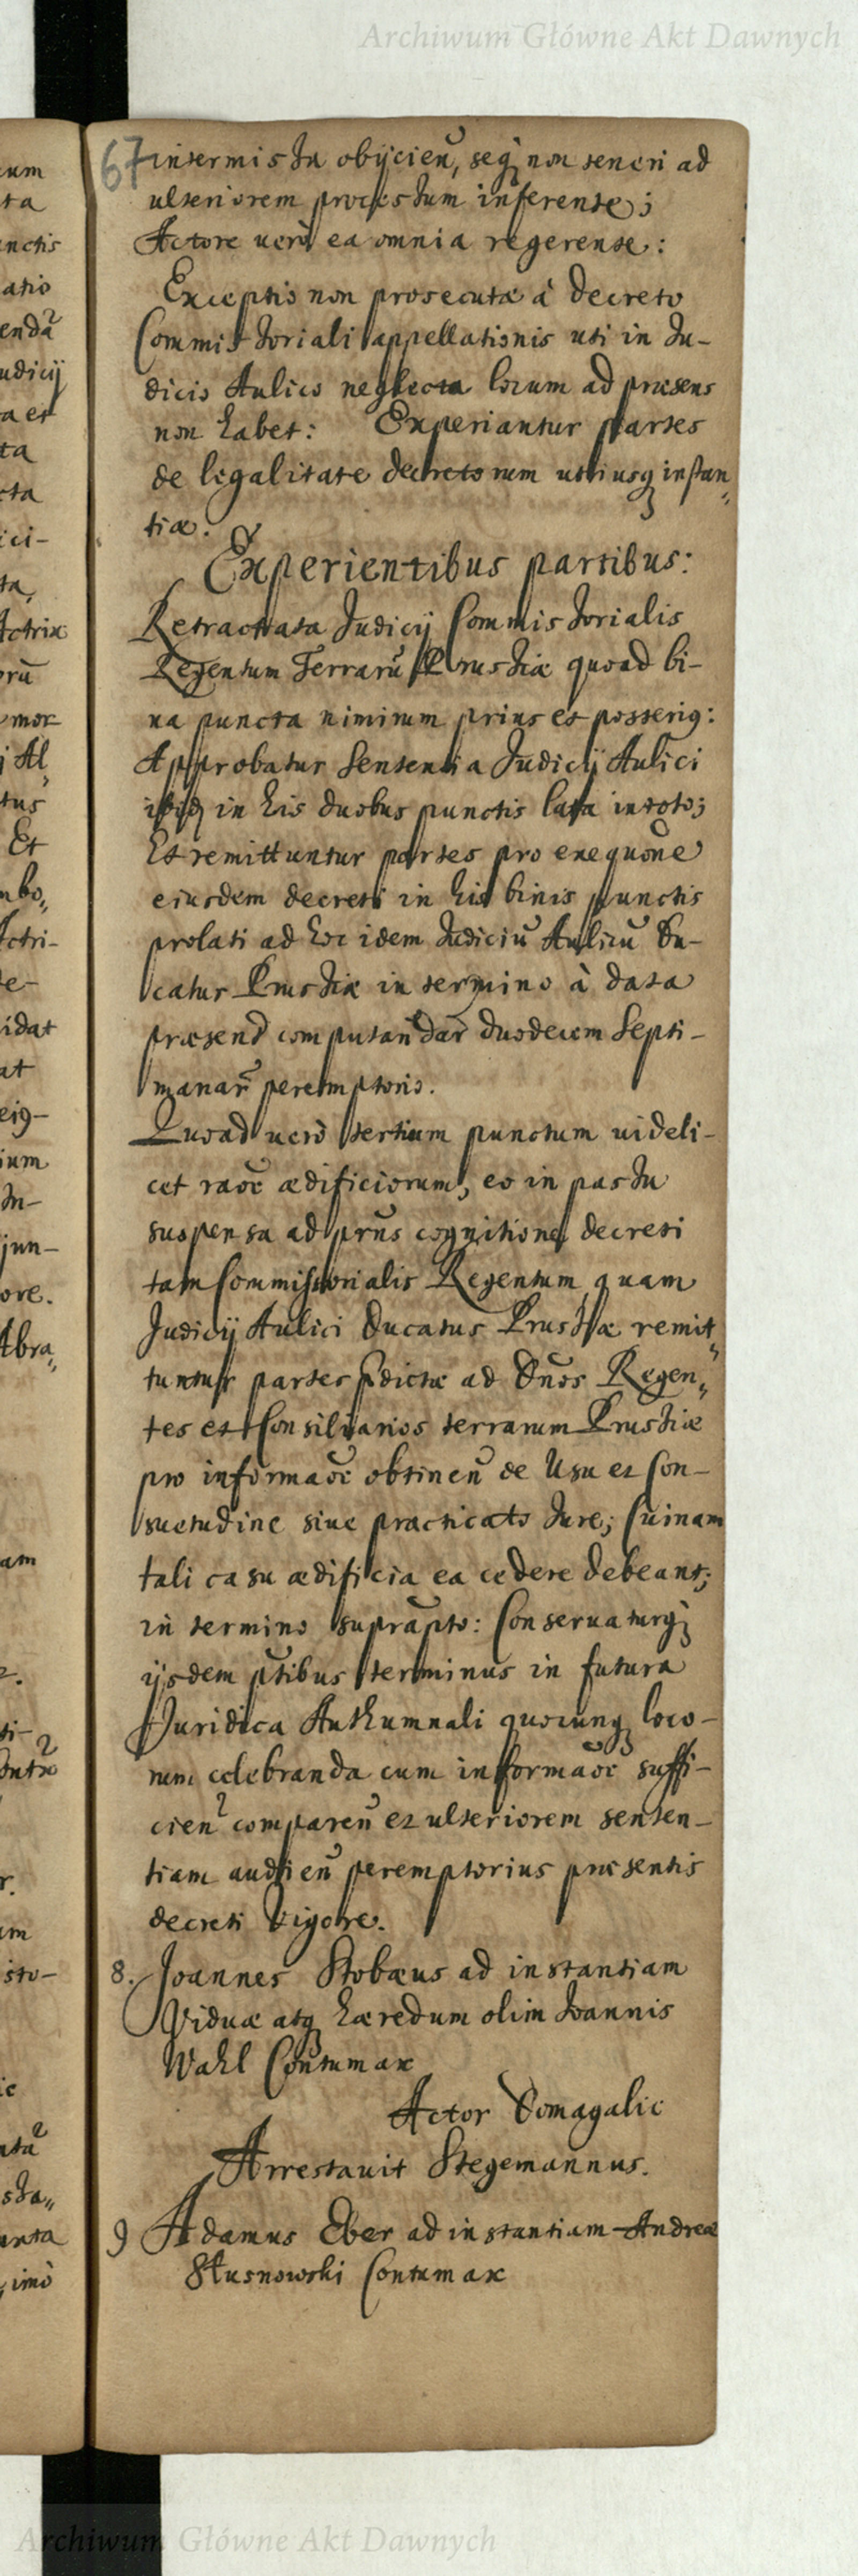 Archiwum Główne Akt Dawnych
67 intermissa obijcieñ, seq; non teneri ad
ulteriorem processum inferente;
Actore uerò ea omnia regerente:
Exceptio non prosecutæ à decreto
Commissoriali appellationis uti in Ju-
dicio Aulico neglecta locum ad præsens
non habet: Experiantur partes
de legalitate decretorum utriusq; instan„
tiæ.
Experientibus partibus:
Retractata Judicij Commissorialis
Regentum Terrarū Prussiæ quoad bi-
na puncta nimirum prius et posterig:
Approbatur Sententia Judicij Aulici
ibiq; in his duobus punctis lata in toto;
Et remittuntur partes pro exequõne
eiusdem decreti in his binis punctis
prolati ad hoc idem Judiciū Aulicū Du-
catus Prussiæ in termino à data
præsend computandar duodecem Septi-
manar̃ peremptorio.
Quoad uerò tertium punctum uideli-
cet raõe ædificiorum, eo in passu
suspensa ad prñs cognitione decreti
tam Commissorialis Regentum quam
Judicij Aulici Ducatus Prussiæ remit„
tuntur partes p̃dictæ ad Dños Regen„
tes et Consiliarios terrarum Prussiæ
pro informaõe obtineñ de Usu et Con-
suetudine siue practicato Jure; Cuinam
tali casu ædificia ea cedere debeant;
in termino suprap̃to: Conseruaturq;
ijsdem p̃tibus terminus in futura
Juridica Authumnali quocunq; loco-
rum celebranda cum informaõe suffi-
cien̉ compareñ et ulteriorem senten-
tiam audieñ peremptorius præsentis
decreti Vigore.
8. Joannes Stobæus ad instantiam
Viduæ atq; hæredum olim Joannis
Wahl Contumax
Actor Domagalic
Arrestauit Stegemannus.
9 Adamus Eber ad instantiam Andreæ
Stusnowski Contumax
Archiwum Główne Akt Dawnych